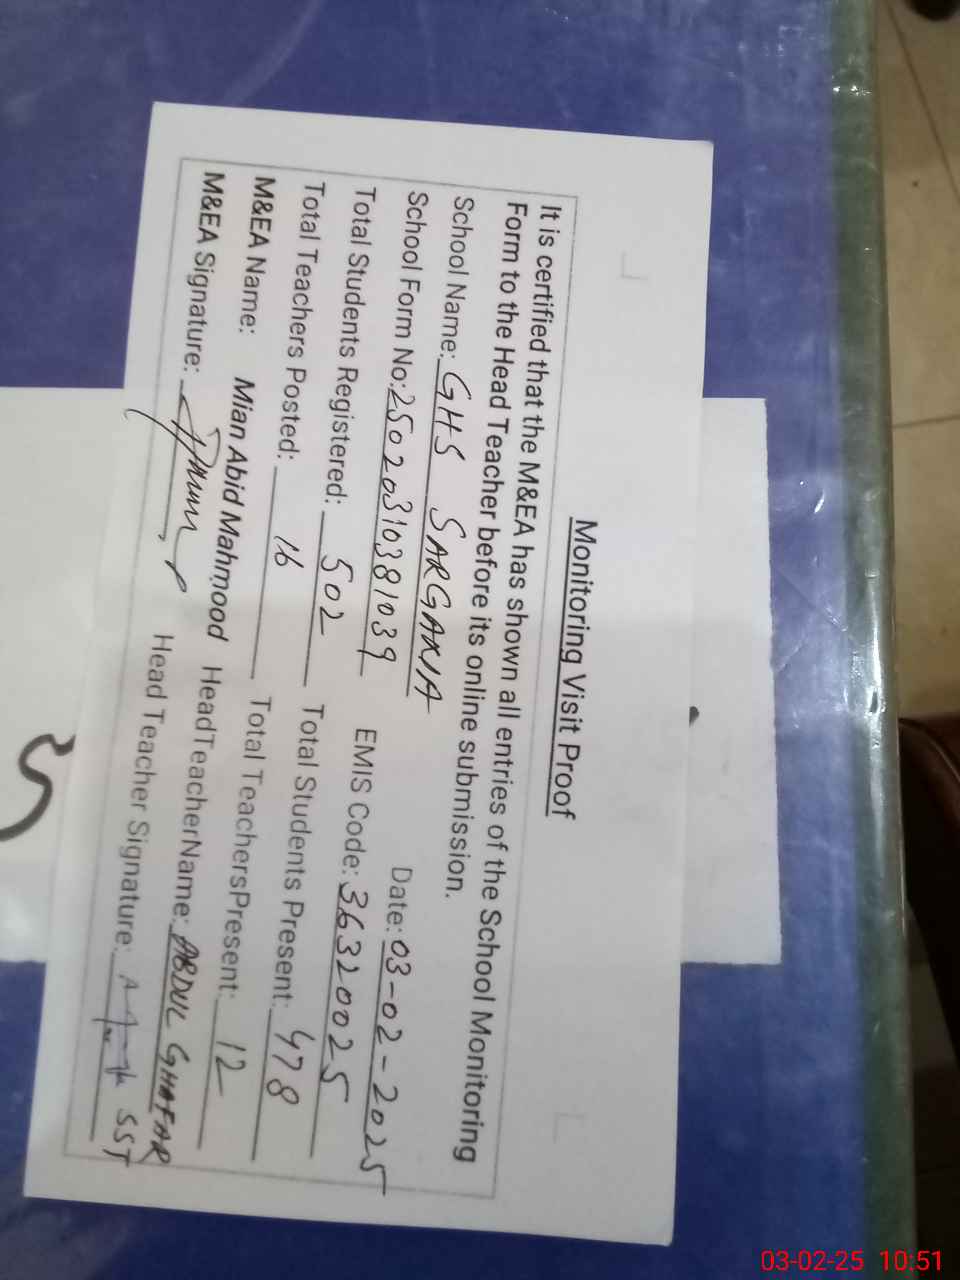 Monitoring Visit Proof
It is certified that the M&EA has shown all entries of the School Monitoring
Form to the Head Teacher before its online submission.
School Name: GHS SARGANA Date: 03-02-2025
School Form No: 25020310381039 EMIS Code: 36320025
Total Students Registered: 502 Total Students Present: 478
Total Teachers Posted: 16 Total TeachersPresent: 12
M&EA Name: Mian Abid Mahmood HeadTeacherName: ABDUL GHAFAR
M&EA Signature: Head Teacher Signature: SST
03-02-25 10:51